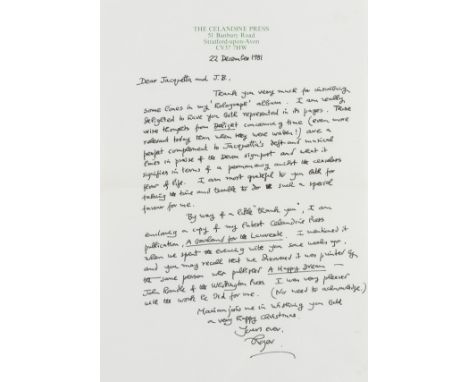 THE CELANDINE PRESS
51 Banbury Road
Stratford-upon-Avon
CV37 7HW
22 December 1981
Dear Jacquetta and J.B.
Thank you very much for inscribing
some lines in my 'Holograph' album. I am really
delighted to have you both represented in its pages. Those
wise thoughts from Delight concerning time (even more
relevant today than when they were written!) are a
perfect complement to Jacquetta's deft and musical
lines in praise of the Devon signpost and what it
signifies in terms of a permanency amidst the
flows of life. I am most grateful to you both for
taking the time and trouble to do such a special
favour for me.
By way of a little "thank you", I am
enclosing a copy of my first Celandine Press
publication, A Garland for the Laureate. I mentioned it
when we spent the evening with you some weeks ago,
and you may recall that we discovered it was printed by
the same person who published A Happy Dream —
John Randle of the Whittington Press. I was very pleased
with the work he did for me. (No need to acknowledge.)
Marian joins me in wishing you both
a very happy Christmas.
Yours ever,
Roger